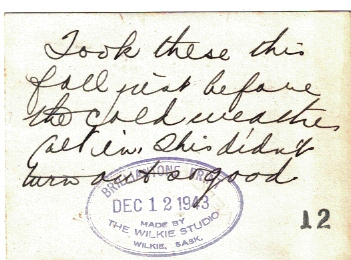 Took these this
fall just before
the cold weather
set in. This didn't
turn out so good
BRILLIANTONE PRINT
DEC 12 1943
MADE BY
THE WILKIE STUDIO
WILKIE, SASK.
12